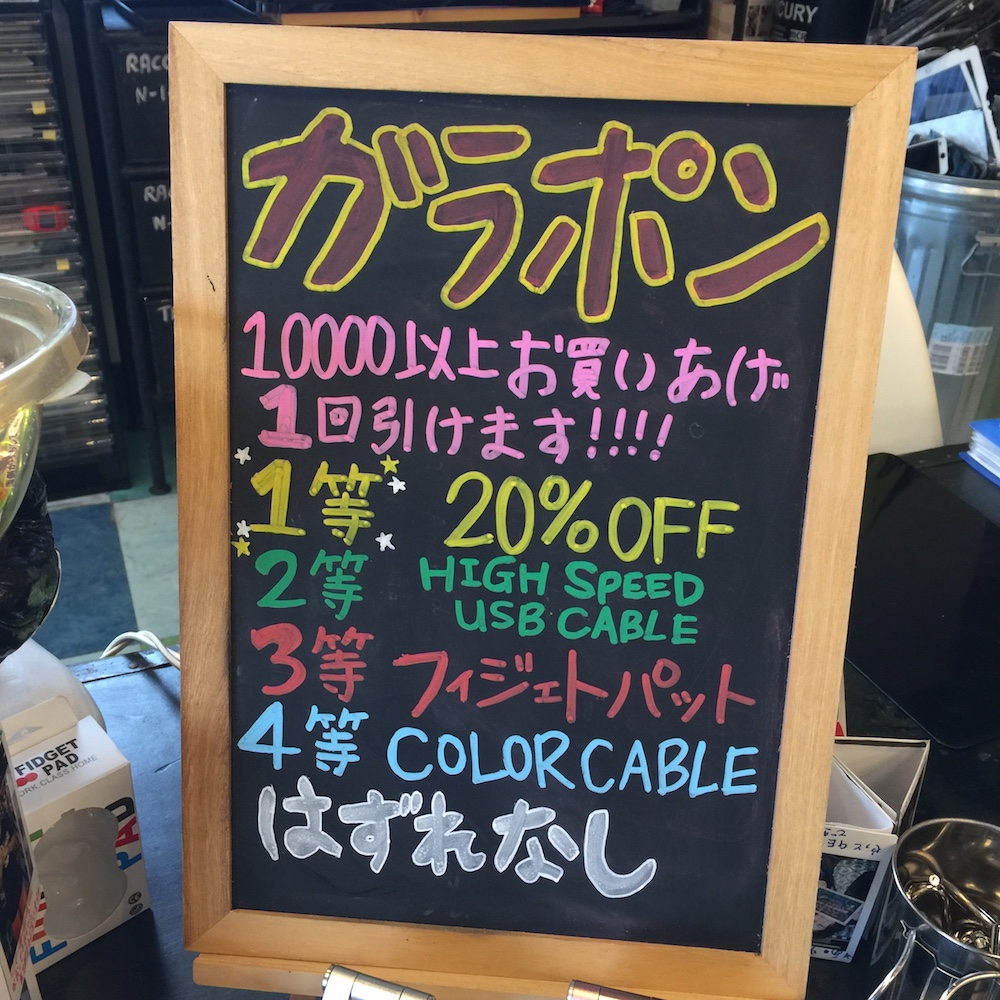 ガラポン
10000以上お買いあげ
1回引けます!!!!
1等 20%OFF
2等 HIGH SPEED
USB CABLE
3等 フィジェトパット
4等 COLOR CABLE
はずれなし
FIDGET
PAD